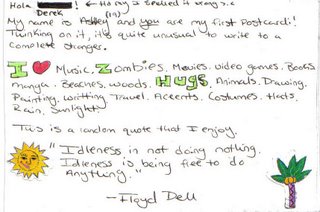 Hola
Derek (19)
My name is Ashley and you are my first Postcard!
Thinking on it, it's quite unusual to write to a
complete stranger.
I ♥ Music, Zombies, Movies, video games, Books
manga, Beaches, woods, Hugs, Animals, Drawing,
Painting, writting, Travel, Accents, Costumes, Hats,
Rain, Sunlight.
This is a random quote that I enjoy.
"Idleness in not doing nothing.
Idleness is being free to do
Anything."
—Floyd Dell